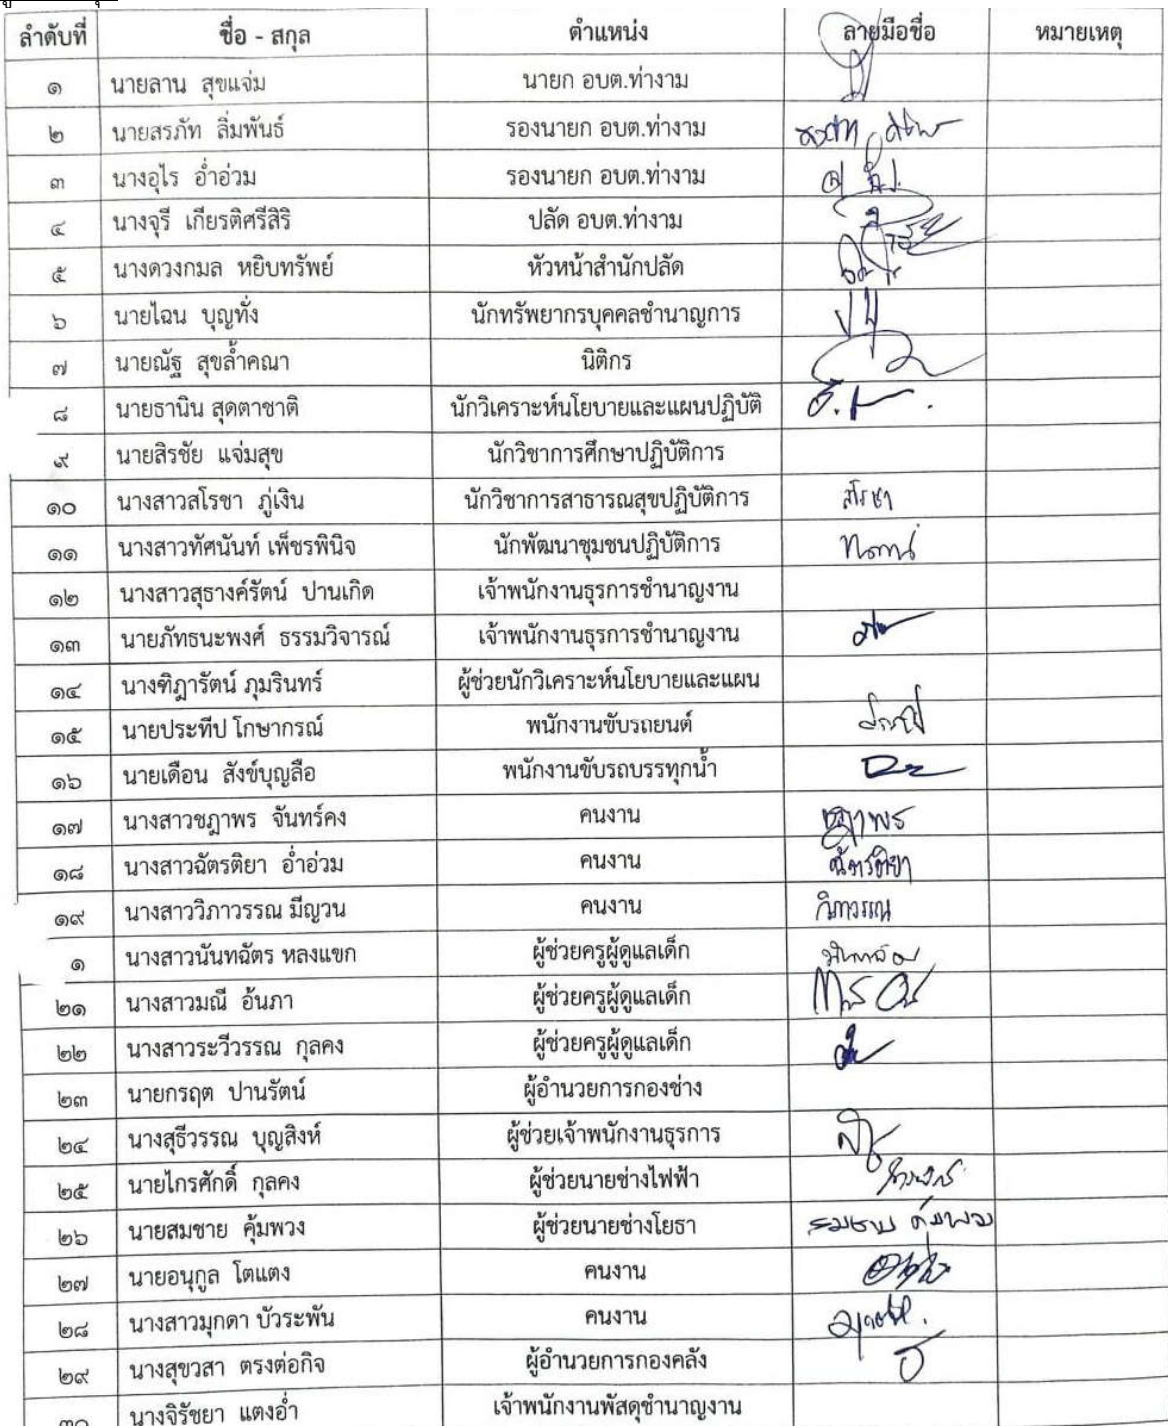 ลำดับที่ ชื่อ - สกุล ตำแหน่ง ลายมือชื่อ หมายเหตุ
๑ นายลาน สุขแจ่ม นายก อบต.ท่างาม
๒ นายสรภัท ลิ่มพันธ์ รองนายก อบต.ท่างาม
๓ นางอุไร อ่ำอ่วม รองนายก อบต.ท่างาม
๔ นางจุรี เกียรติศรีสิริ ปลัด อบต.ท่างาม
๕ นางดวงกมล หยิบทรัพย์ หัวหน้าสำนักปลัด
๖ นายไฉน บุญทั่ง นักทรัพยากรบุคคลชำนาญการ
๗ นายณัฐ สุขล้ำคณา นิติกร
๘ นายธานิน สุดตาชาติ นักวิเคราะห์นโยบายและแผนปฏิบัติ
๙ นายสิรชัย แจ่มสุข นักวิชาการศึกษาปฏิบัติการ
๑๐ นางสาวสโรชา ภู่เงิน นักวิชาการสาธารณสุขปฏิบัติการ สโรชา
๑๑ นางสาวทัศนันท์ เพ็ชรพินิจ นักพัฒนาชุมชนปฏิบัติการ
๑๒ นางสาวสุธางค์รัตน์ ปานเกิด เจ้าพนักงานธุรการชำนาญงาน
๑๓ นายภัทธนะพงศ์ ธรรมวิจารณ์ เจ้าพนักงานธุรการชำนาญงาน
๑๔ นางฑิฎารัตน์ ภุมรินทร์ ผู้ช่วยนักวิเคราะห์นโยบายและแผน
๑๕ นายประทีป โกษากรณ์ พนักงานขับรถยนต์
๑๖ นายเดือน สังข์บุญลือ พนักงานขับรถบรรทุกน้ำ
๑๗ นางสาวชฎาพร จันทร์คง คนงาน ชฎาพร
๑๘ นางสาวฉัตรติยา อ่ำอ่วม คนงาน ฉัตรติยา
๑๙ นางสาววิภาวรรณ มีญวน คนงาน วิภาวรรณ
๑ นางสาวนันทฉัตร หลงแขก ผู้ช่วยครูผู้ดูแลเด็ก
๒๑ นางสาวมณี อ้นภา ผู้ช่วยครูผู้ดูแลเด็ก
๒๒ นางสาวระวีวรรณ กุลคง ผู้ช่วยครูผู้ดูแลเด็ก
๒๓ นายกรฤต ปานรัตน์ ผู้อำนวยการกองช่าง
๒๔ นางสุธีวรรณ บุญสิงห์ ผู้ช่วยเจ้าพนักงานธุรการ
๒๕ นายไกรศักดิ์ กุลคง ผู้ช่วยนายช่างไฟฟ้า
๒๖ นายสมชาย คุ้มพวง ผู้ช่วยนายช่างโยธา สมชาย คุ้มพวง
๒๗ นายอนุกูล โตแตง คนงาน
๒๘ นางสาวมุกดา บัวระพัน คนงาน
๒๙ นางสุขวสา ตรงต่อกิจ ผู้อำนวยการกองคลัง
๓๐ นางจิรัชยา แตงอ่ำ เจ้าพนักงานพัสดุชำนาญงาน